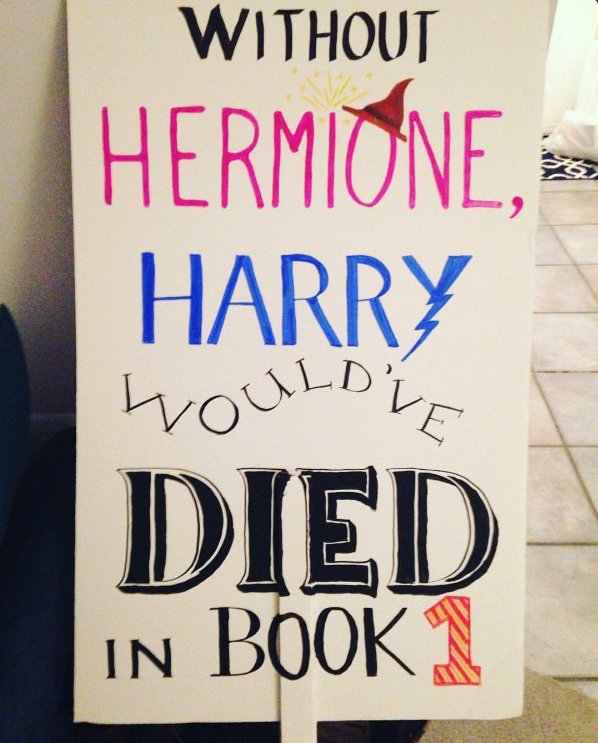 WITHOUT
HERMIONE,
HARRY
WOULD'VE
DIED
IN BOOK 1